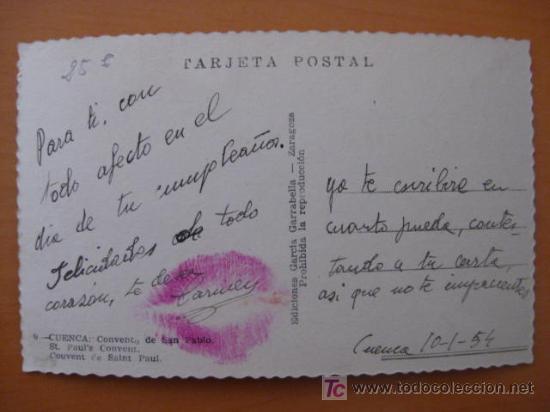 85 €
TARJETA POSTAL
Para ti, con
todo afecto en el
día de tu cumpleaños.
Felicidades de todo
corazón, te desea
Carmen
9.—CUENCA: Convento de San Pablo.
St. Paul's Convent.
Couvent de Saint Paul.
Ediciones García Garrabella — Zaragoza
Prohibida la reproducción
yo te escribire en
cuanto pueda, contes-
tando a tu carta,
asi que no te impacientes
Cuenca 10-1-54
todocoleccion
www.todocoleccion.net